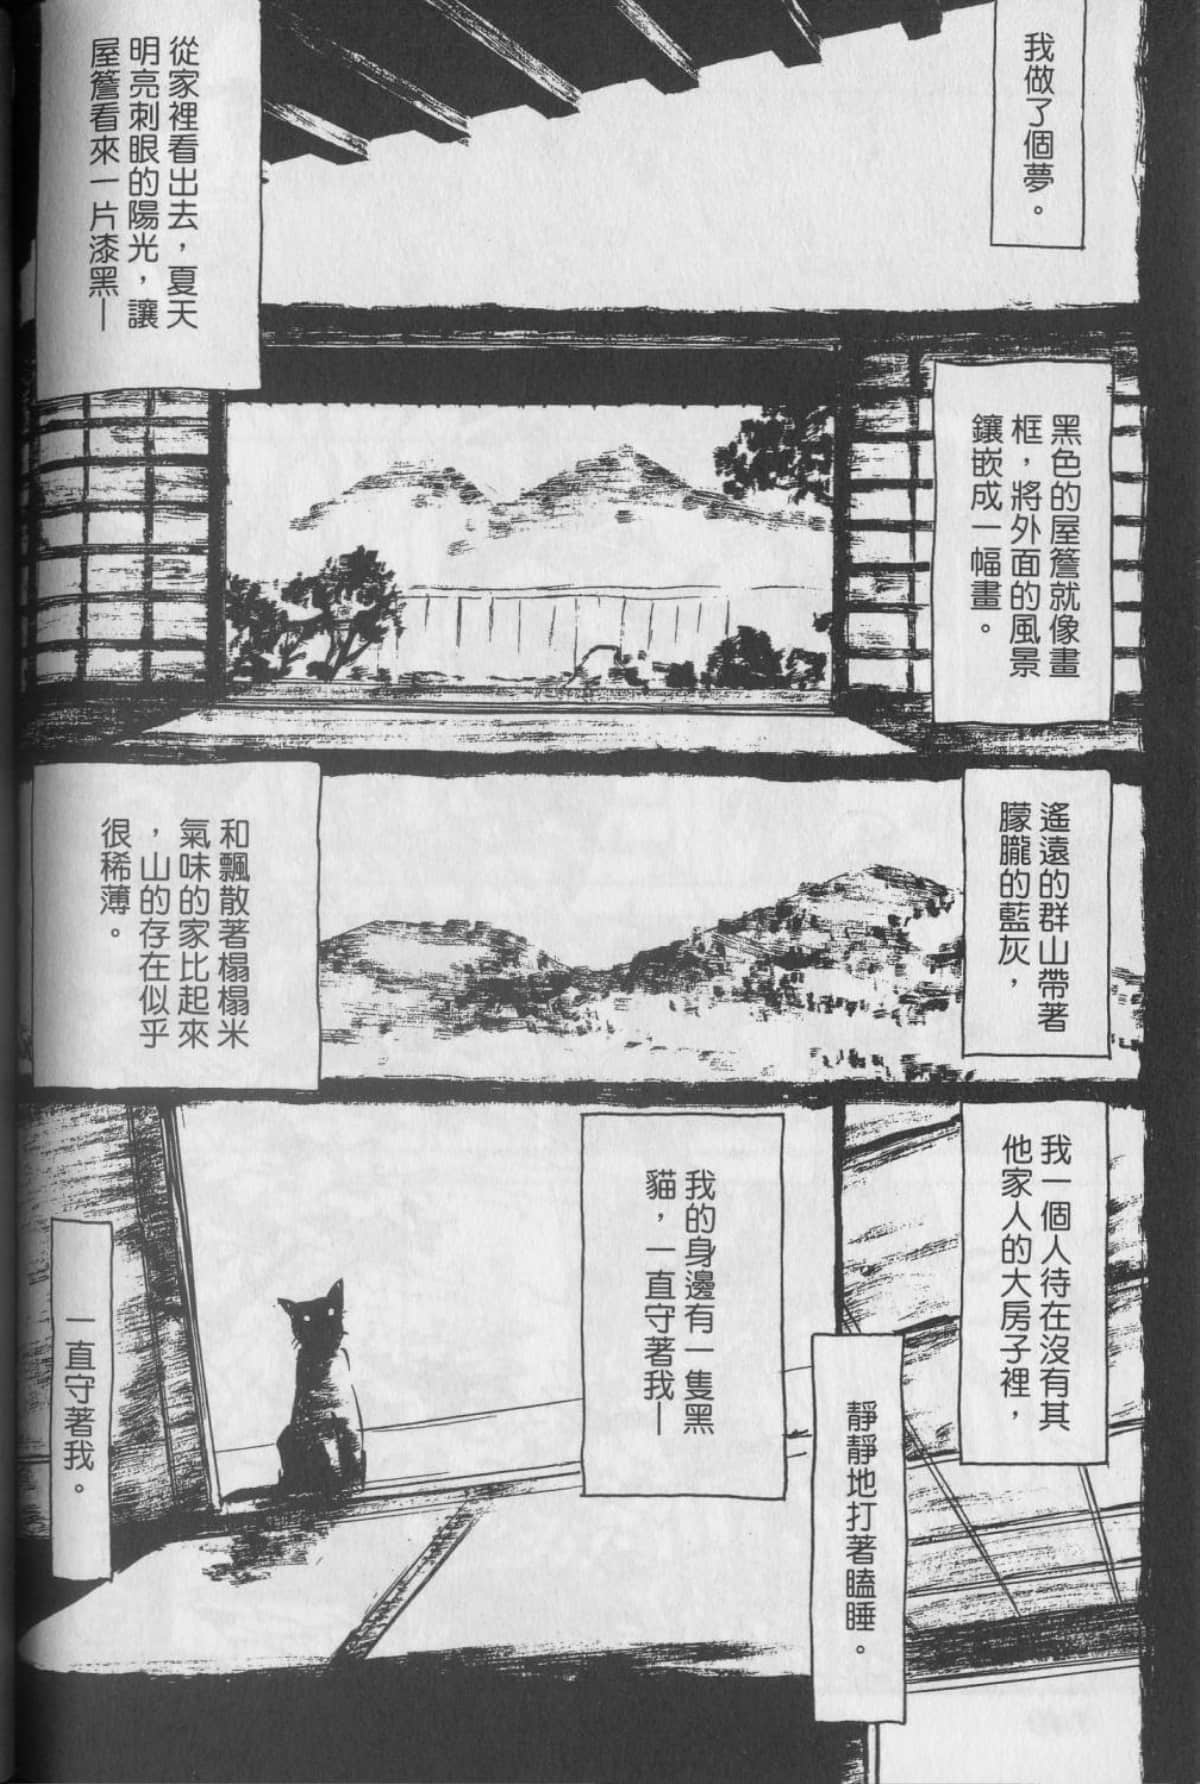 我做了個夢。
從家裡看出去，夏天
明亮刺眼的陽光，讓
屋簷看來一片漆黑—
黑色的屋簷就像畫
框，將外面的風景
鑲嵌成一幅畫。
遙遠的群山帶著
朦朧的藍灰，
和飄散著榻榻米
氣味的家比起來
，山的存在似乎
很稀薄。
我一個人待在沒有其
他家人的大房子裡，
靜靜地打著瞌睡。
我的身邊有一隻黑
貓，一直守著我—
一直守著我。